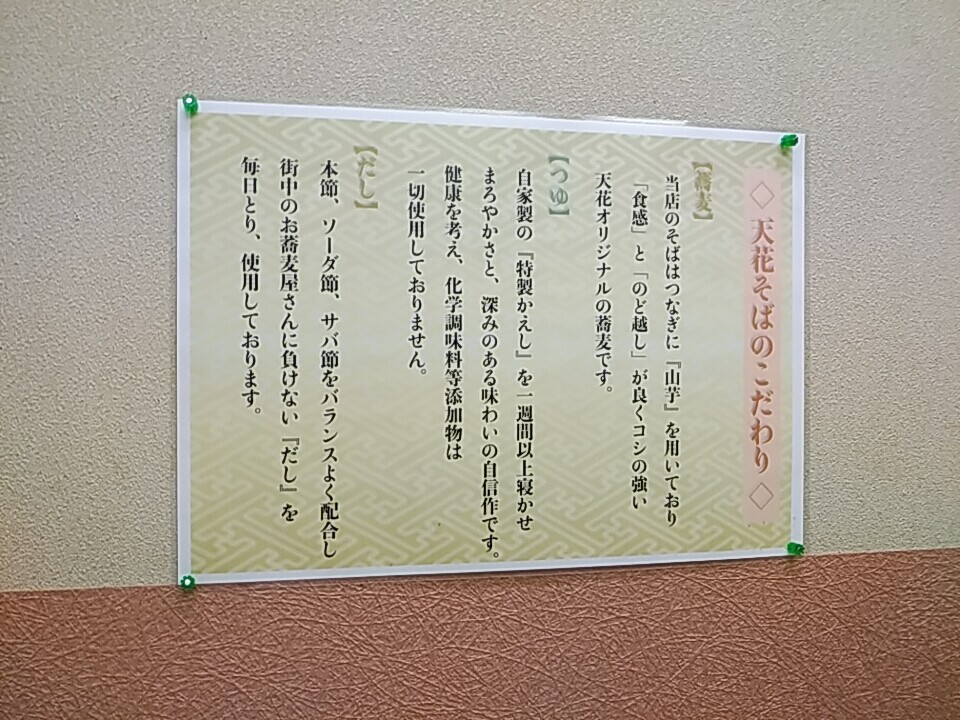 ◇ 天花そばのこだわり ◇
【蕎麦】
当店のそばはつなぎに『山芋』を用いており
「食感」と「のど越し」が良くコシの強い
天花オリジナルの蕎麦です。
【つゆ】
自家製の『特製かえし』を一週間以上寝かせ
まろやかさと、深みのある味わいの自信作です。
健康を考え、化学調味料等添加物は
一切使用しておりません。
【だし】
本節、ソーダ節、サバ節をバランスよく配合し
街中のお蕎麦屋さんに負けない『だし』を
毎日とり、使用しております。